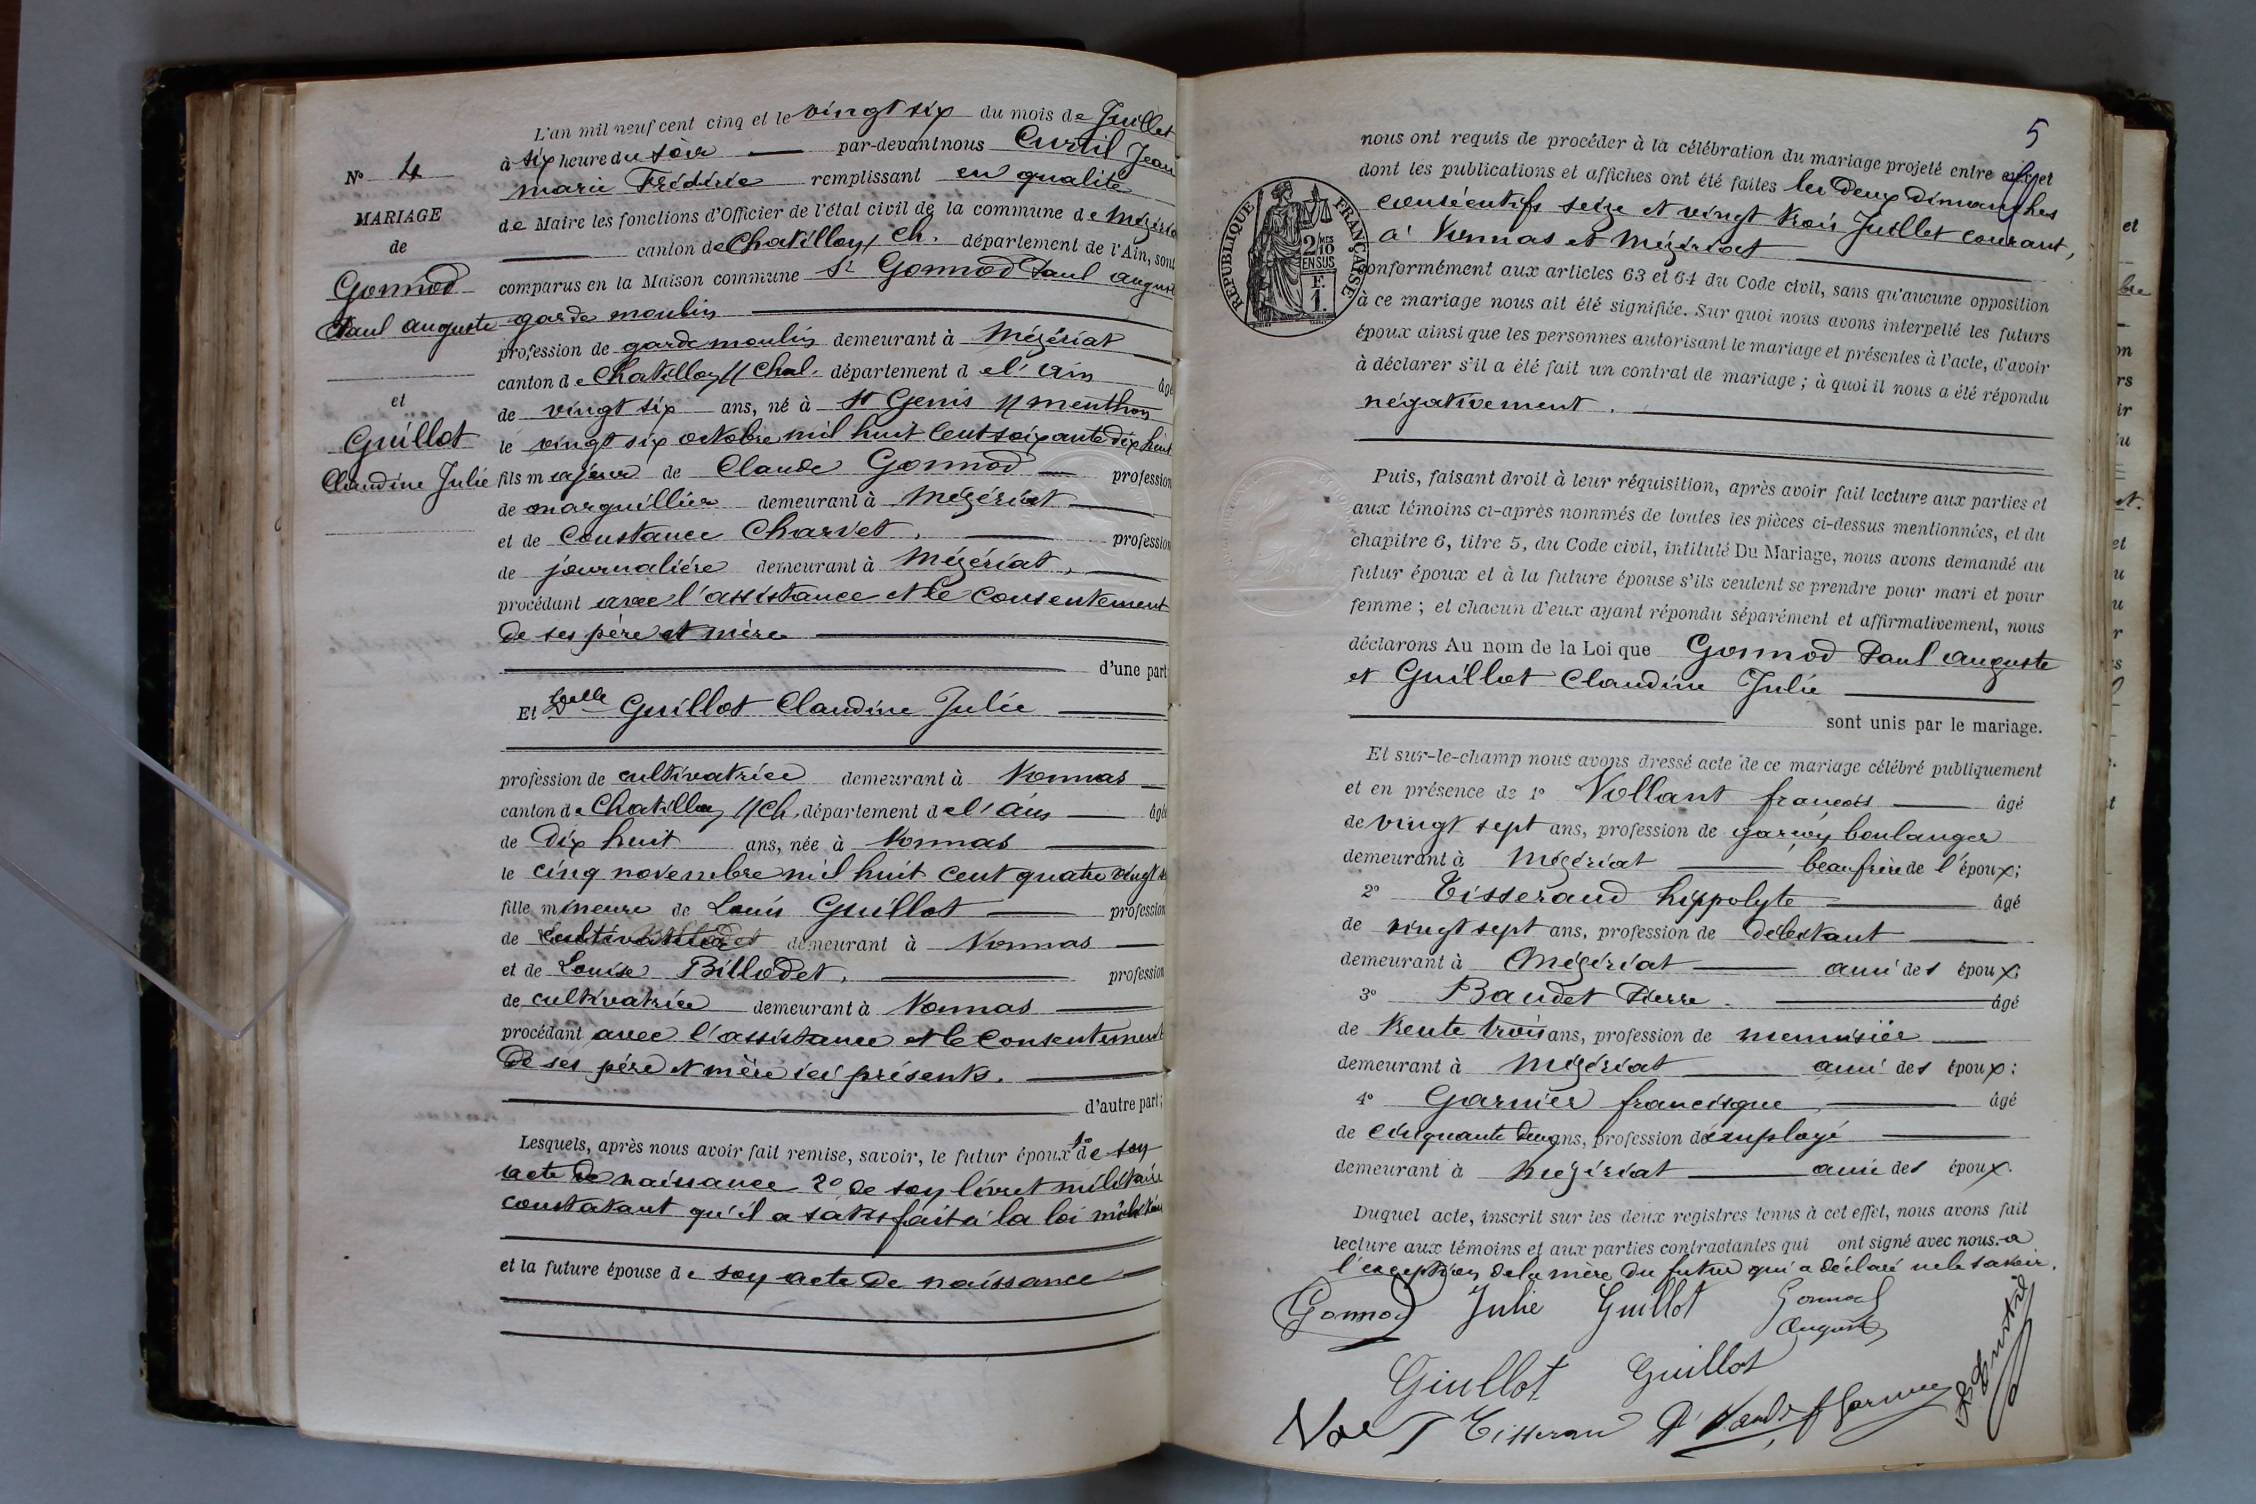 L'an mil neuf cent cinq et le vingt six du mois de Juillet
à six heure du soir par-devant nous Curtil Jean
marie Frédéric remplissant en qualité
de Maire les fonctions d'Officier de l'état civil de la commune de Mézériat
canton de Chatillon s/ Ch. département de l'Ain, sont
comparus en la Maison commune Sr Gonnod Paul auguste
garde moulin
profession de garde moulin demeurant à Mézériat
canton de Chatillon s/ Chal. département de l'ain âgé
de vingt six ans, né à St Genis s/ menthon
le vingt six octobre mil huit cent soixante dix huit
fils majeur de Claude Gonnod profession
de marguillier demeurant à Mézériat
et de Constance Charvet, profession
de journalière demeurant à Mézériat,
procédant avec l'assistance et le consentement
de ses père et mère
d'une part
Et Delle Guillot Claudine Julie
profession de cultivatrice demeurant à Vonnas
canton de Chatillon s/ Ch, département de l'ain âgée
de Dix huit ans, née à Vonnas
le cinq novembre mil huit cent quatre vingt
fille mineure de Louis Guillot profession
de demeurant à Vonnas
et de Louise Billodet, profession
de cultivatrice demeurant à Vonnas
procédant avec l'assistance et le consentement
De ses père et mère ici présents.
d'autre part;
Lesquels, après nous avoir fait remise, savoir, le futur époux 1° de son
acte de naissance 2° de son livret militaire
constatant qu'il a satisfait à la loi militaire
et la future épouse de son acte de naissance
N° 4
MARIAGE
de
Gonnod
Paul auguste
et
Guillot
Claudine Julie
5
nous ont requis de procéder à la célébration du mariage projeté entre eux et
dont les publications et affiches ont été faites les deux dimanches
consécutifs seize et vingt trois Juillet courant,
à Vonnas et Mézériat
conformément aux articles 63 et 64 du Code civil, sans qu'aucune opposition
à ce mariage nous ait été signifiée. Sur quoi nous avons interpellé les futurs
époux ainsi que les personnes autorisant le mariage et présentes à l'acte, d'avoir
à déclarer s'il a été fait un contrat de mariage; à quoi il nous a été répondu
négativement.
Puis, faisant droit à leur réquisition, après avoir fait lecture aux parties et
aux témoins ci-après nommés de toutes les pièces ci-dessus mentionnées, et du
chapitre 6, titre 5, du Code civil, intitulé Du Mariage, nous avons demandé au
futur époux et à la future épouse s'ils veulent se prendre pour mari et pour
femme; et chacun d'eux ayant répondu séparément et affirmativement, nous
déclarons Au nom de la Loi que Gonnod Paul auguste
et Guillot Claudine Julie
sont unis par le mariage.
Et sur-le-champ nous avons dressé acte de ce mariage célébré publiquement
et en présence de 1° Vollant françois âgé
de vingt sept ans, profession de garçon boulanger
demeurant à Mézériat beau frère de l'époux;
2° Tisserand hippolyte âgé
de vingt sept ans, profession de débitant
demeurant à Mézériat ami des époux;
3° Baudet Pierre. âgé
de trente trois ans, profession de menuisier
demeurant à Mézériat ami des époux;
4° Garnier francisque âgé
de cinquante deux ans, profession d'employé
demeurant à Mézériat ami des époux.
Duquel acte, inscrit sur les deux registres tenus à cet effet, nous avons fait
lecture aux témoins et aux parties contractantes qui ont signé avec nous. a
l'exception de la mère du futur qui a déclaré ne le savoir.
Gonnod Julie Guillot Gonnod
Auguste
Guillot Guillot
Tisseran
RÉPUBLIQUE FRANÇAISE
2/10 MES
EN SUS
F.
1.